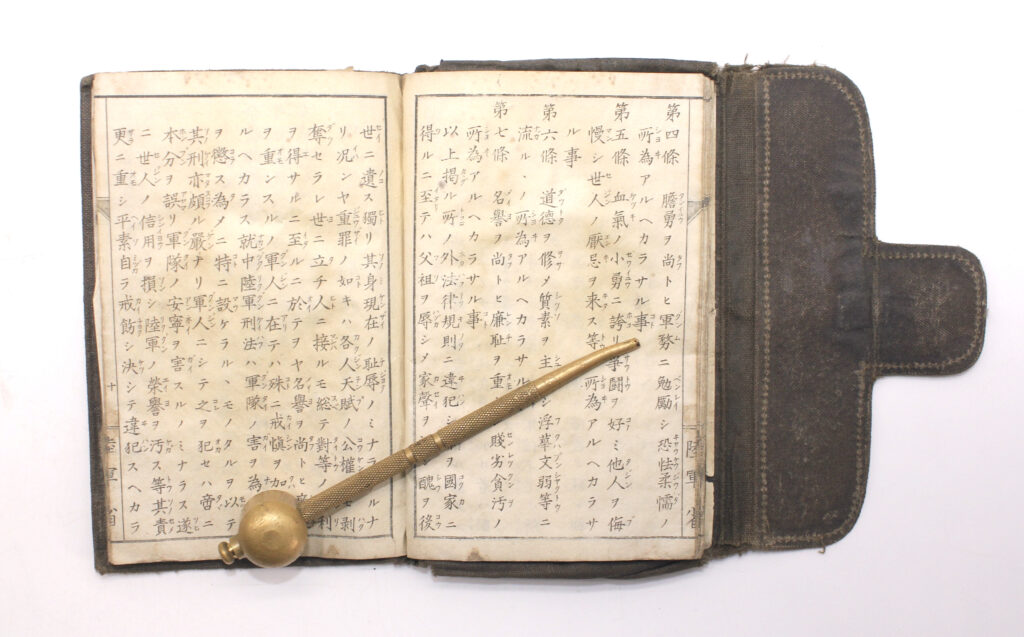 第四條 膽勇ヲ尚トヒ軍務ニ勉勵シ恐怯柔懦ノ
所為アルヘカラサル事
第五條 血氣ノ小勇ニ誇リ爭鬪ヲ好ミ他人ヲ侮
慢シ世人ノ厭忌ヲ来ス等ノ所為アルヘカラサ
ル事
第六條 道德ヲ修メ質素ヲ主トシ浮華文弱等ニ
流ルヽノ所為アルヘカラサル
第七條 名譽ヲ尚トヒ廉耻ヲ重 賤劣貪汚ノ
所為アルヘカラサル事
以上掲クル所ノ外法律規則ニ違犯シ ヲ國家ニ
得ルニ至テハ父祖ヲ辱シメ家聲ヲ 醜ヲ後
世ニ遺ス獨リ其身現在ノ耻辱ノミナラ ルナ
リ况ンヤ重罪ノ如キハ各人天賦ノ公權 モ剥
奪セラレ世ニ立チ人ニ接ルモ總テ對等ノ 利
ヲ得サルニ至ルニ於テヲヤ名譽ヲ尚ト
ヲ重ンスルノ軍人ニ在テハ殊ニ戒慎ヲ加
ルヘカラス就中陸軍刑法ハ軍隊ノ害ヲ為
ヲ懲ス為メニ特ニ設ケラルヽモノタルヲ以テ
其刑亦頗ル嚴ナリ軍人ニシテ之ヲ犯セハ帝ニ
本分ヲ誤リ軍隊ノ安寧ヲ害スルノミナラス遂
ニ世人ノ信用ヲ損シ陸軍ノ榮譽ヲ汚ス等其責
更ニ重シ平素自ラ戒飭シ決シテ違犯スヘカラ
十
陸軍省
陸軍省